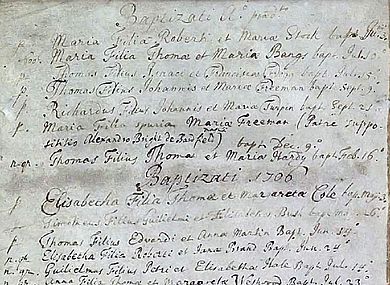 Baptizati Ao. prædt.
p Maria Filia Roberti et Mariæ Stock bapt.
Maria Filia Thomæ et Maria Bangs bapt. Jul.
n Thomas Filius Ignaci et bapt. Jul. 15.
p Thomas Filius Johannis et Mariæ Freeman bapt. Sept. 9.
p Richardus Filius Johannis et Mariæ Turpin bapt. Sept. 21.
p Maria Filia spuria Maria Freeman (Patre suppo
sititio Alexandro Bright de Badfield) bapt. Dec. 9.
n.gr. Thomas Filius Thomæ et Maria Hardy bapt. Feb. 16.
Baptizati 1706
p Elisabetha Filia Thomæ et Margareta Cole bap. May
Filius Guilielmi et
p Thomas Filius Edvardi et Anna Martin Bapt. Jun. 14
n.gr. Elisabetha Filia Roberti et Brand Bapt. Jun. 24
n.gr. Guilielmus Filius Petri et Elisabetha Hale Bapt. Jul. 14
Anna Filia Thomæ et Margareta Bapt. Jul. 22